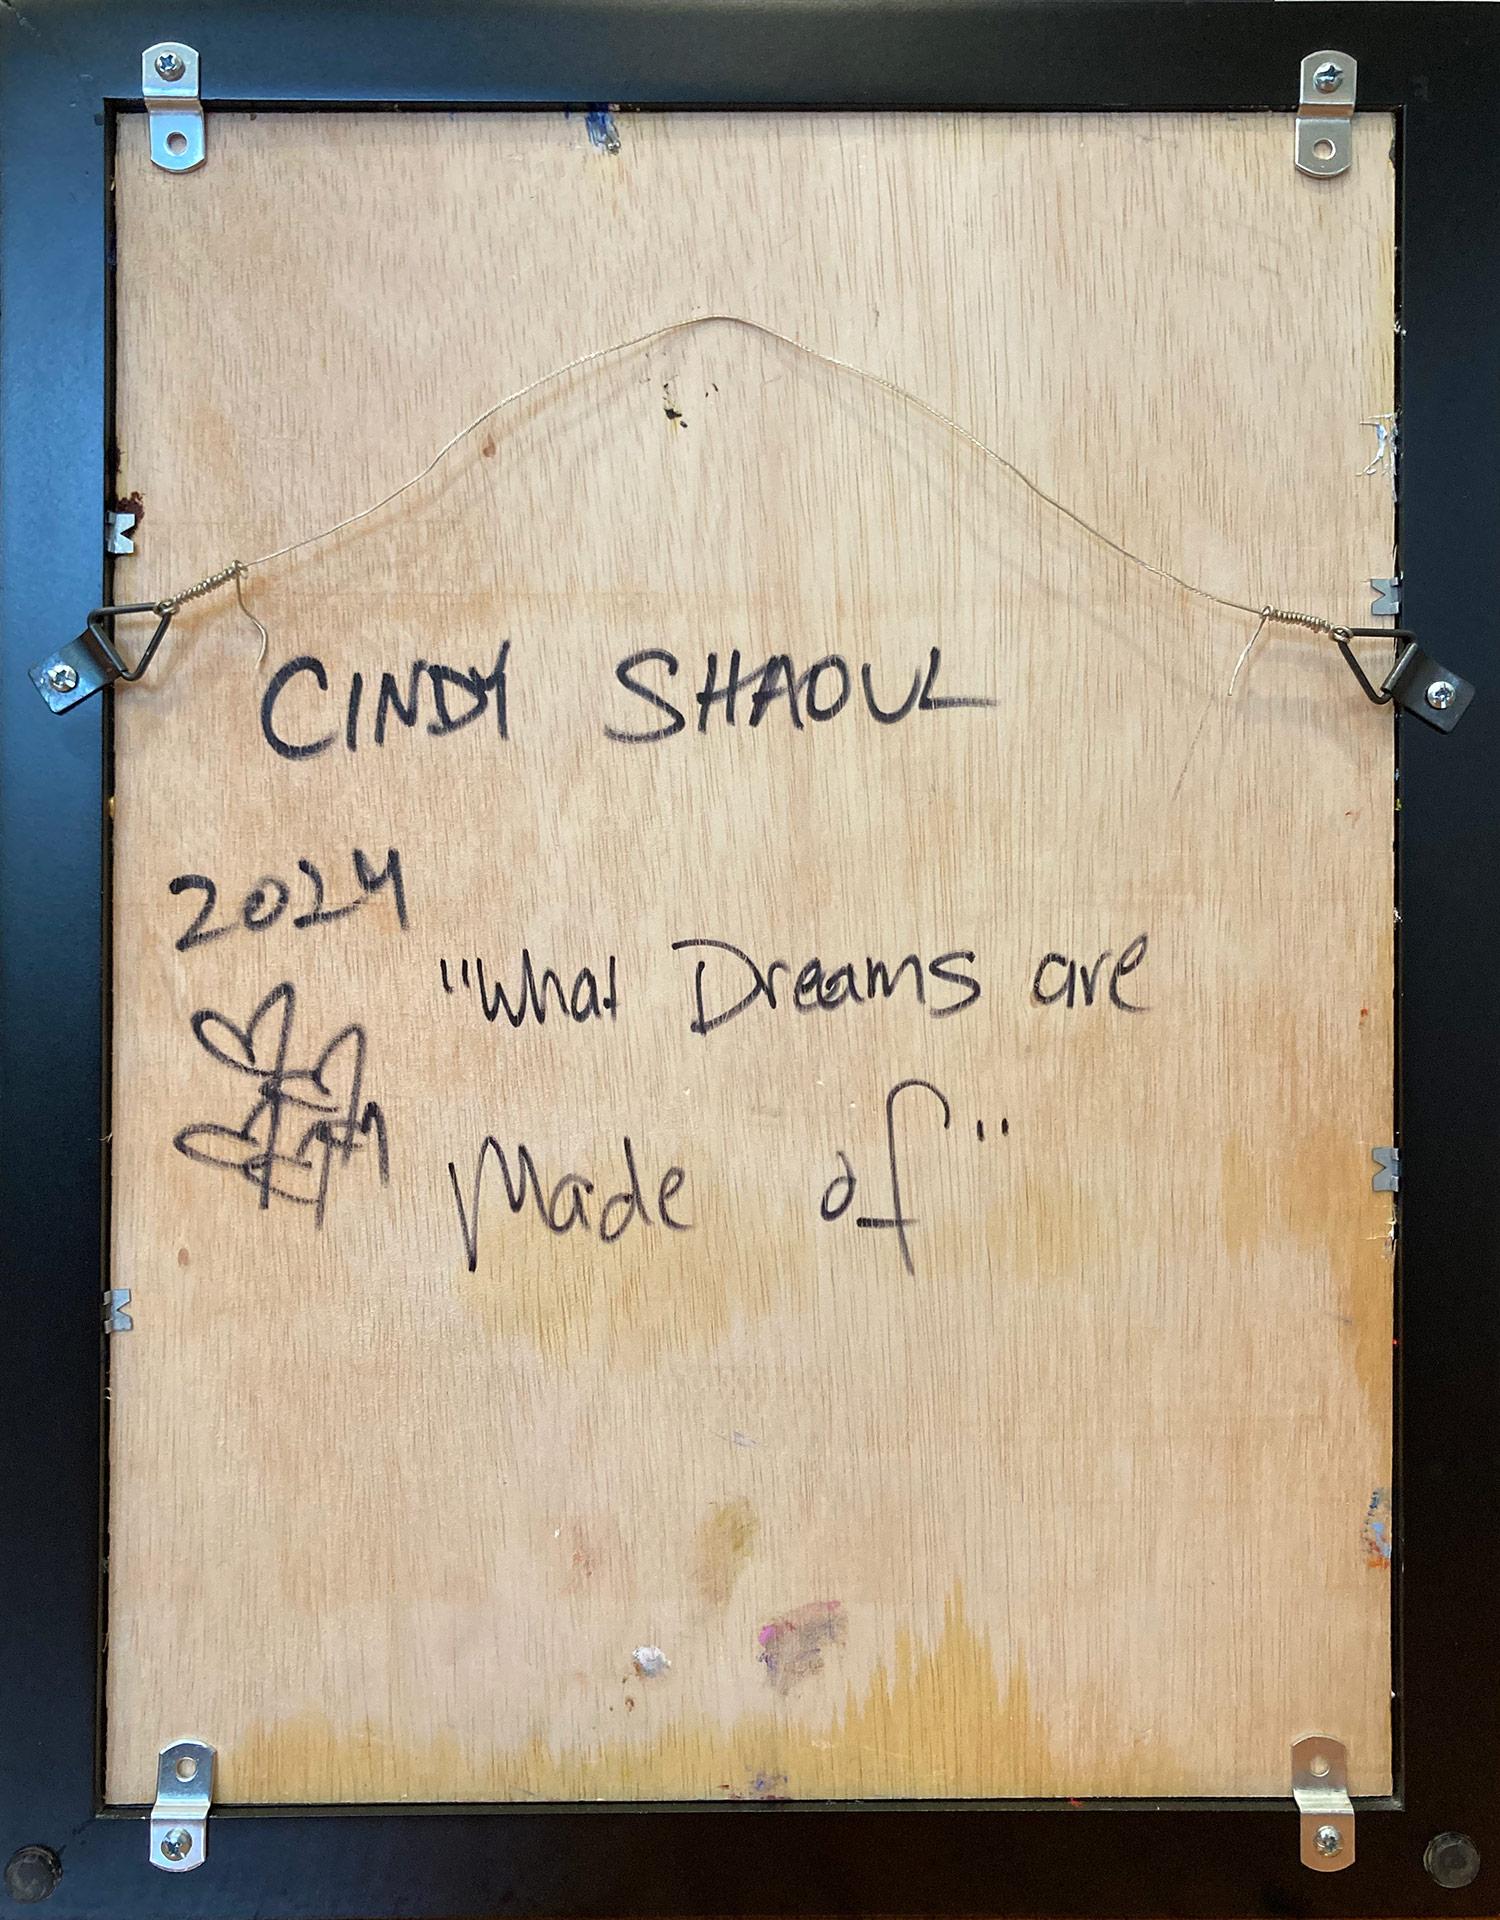 CINDY SHAOUL
2024
"What Dreams are
Made of"